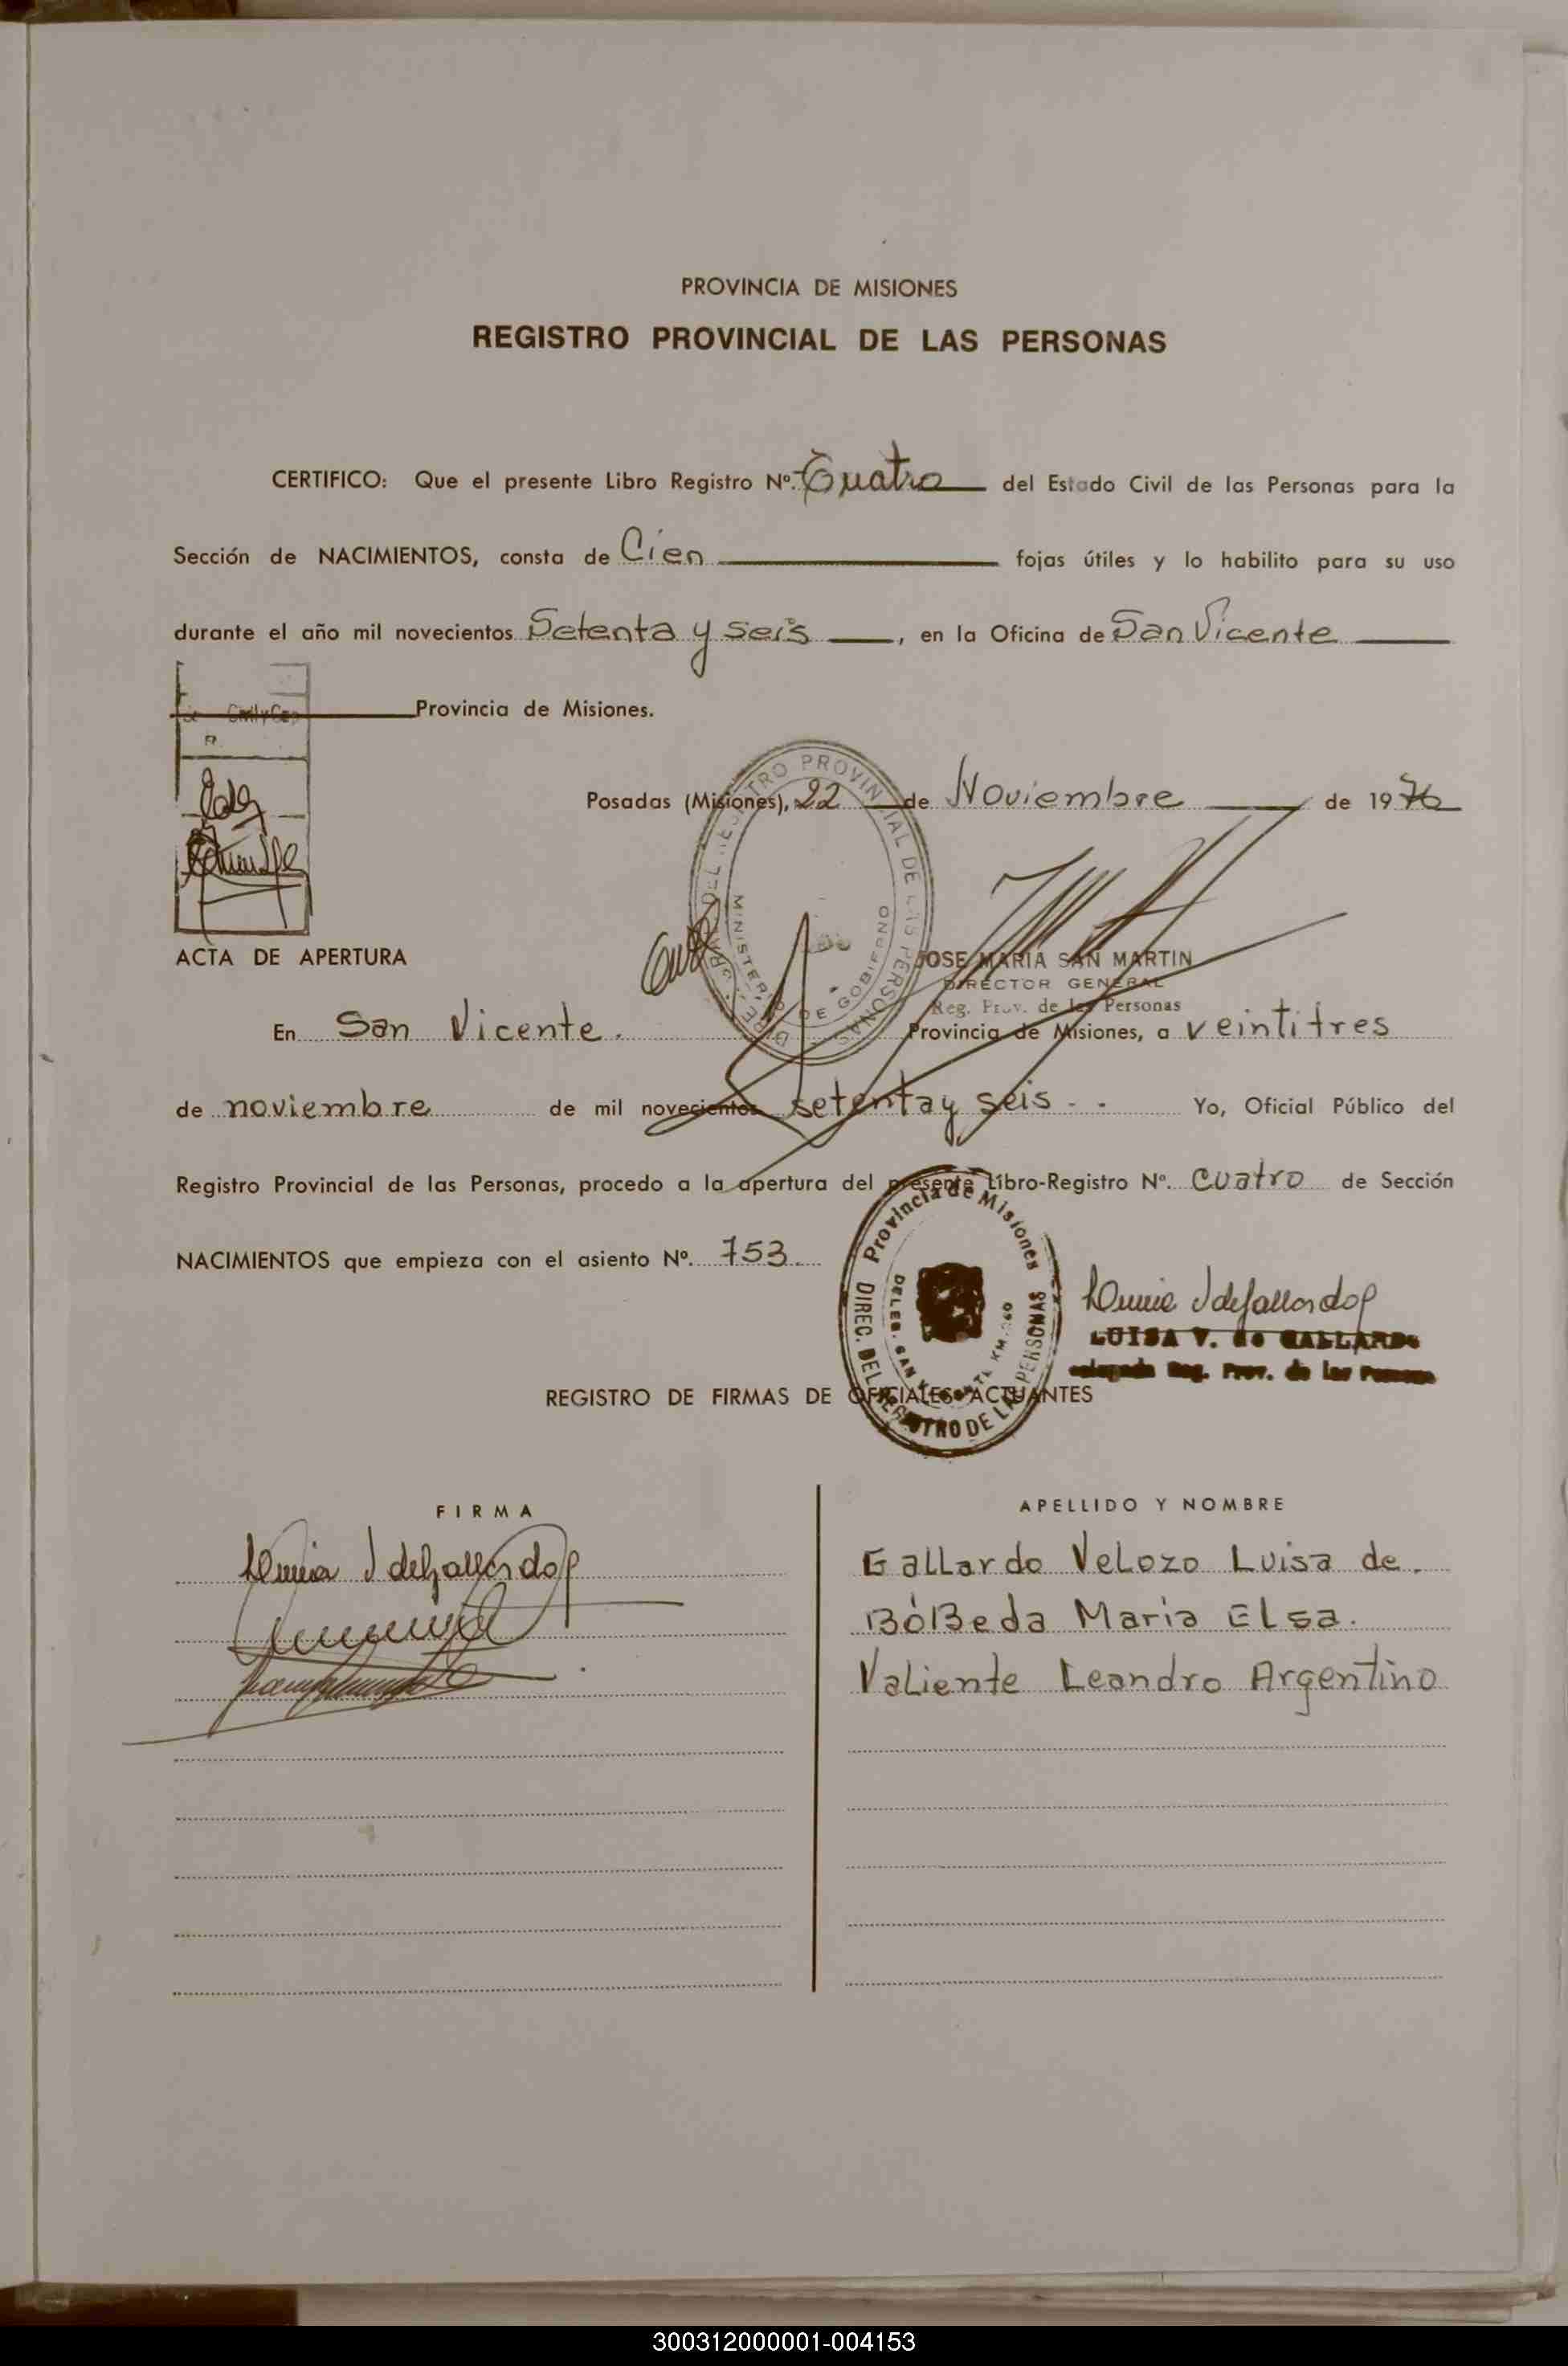 PROVINCIA DE MISIONES
REGISTRO PROVINCIAL DE LAS PERSONAS
CERTIFICO: Que el presente Libro Registro Nº. Cuatro del Estado Civil de las Personas para la
Sección de NACIMIENTOS, consta de Cien fojas útiles y lo habilito para su uso
durante el año mil novecientos Setenta y seis, en la Oficina de San Vicente
Provincia de Misiones.
Posadas (Misiones), 22 de Noviembre de 1976
JOSE MARIA SAN MARTIN
DIRECTOR GENERAL
Reg. Prov. de las Personas
ACTA DE APERTURA
En San Vicente. Provincia de Misiones, a veintitres
de noviembre de mil novecientos setenta y seis - - Yo, Oficial Público del
Registro Provincial de las Personas, procedo a la apertura del presente Libro-Registro Nº. cuatro de Sección
NACIMIENTOS que empieza con el asiento Nº. 753.
Provincia de Misiones
DIREC. DEL REGISTRO DE LAS PERSONAS
LUISA V. de GALLARDO
Reg. Prov. de las Personas
REGISTRO DE FIRMAS DE OFICIALES ACTUANTES
FIRMA
APELLIDO Y NOMBRE
Gallardo Velozo Luisa de.
BóBeda Maria Elsa.
Valiente Leandro Argentino
300312000001-004153